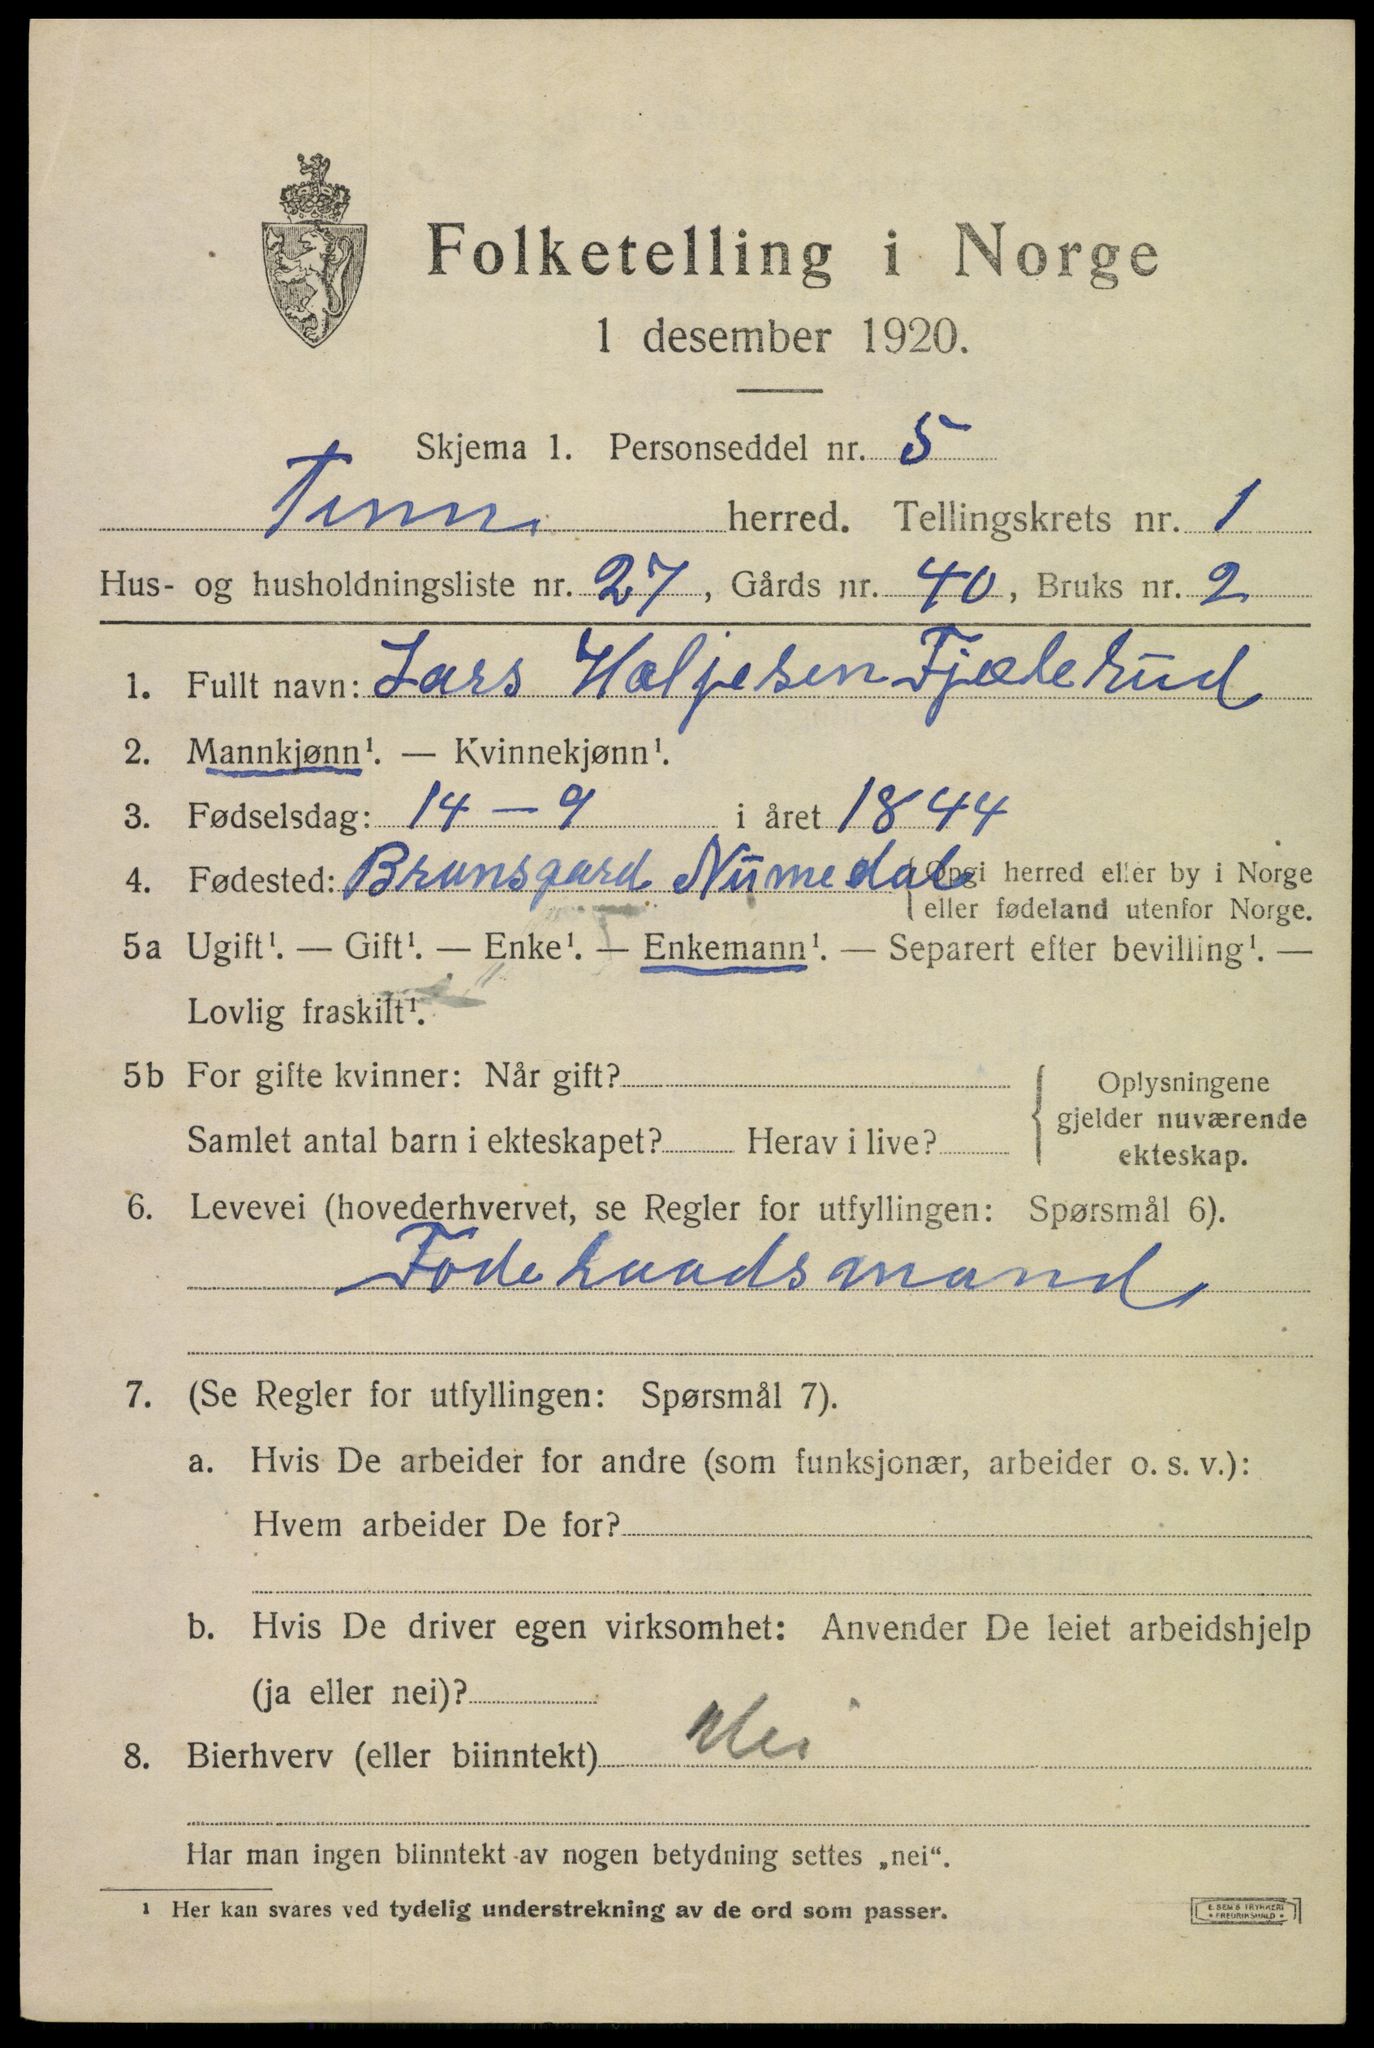 Folketelling i Norge
1 desember 1920.
Skjema 1. Personseddel nr. 5
Tinn herred. Tellingskrets nr. 1
Hus- og husholdningsliste nr. 27, Gårds nr. 40, Bruks nr. 2
1. Fullt navn: Lars Haljesen Fjælerud
2. Mannkjønn¹. — Kvinnekjønn¹.
3. Fødselsdag: 14 – 9 i året 1844
4. Fødested: Brunsgard Numedal (Opgi herred eller by i Norge
eller fødeland utenfor Norge.
5a Ugift¹. — Gift¹. — Enke¹. — Enkemann¹. — Separert efter bevilling¹. —
Lovlig fraskilt¹.
5b For gifte kvinner: Når gift?
Samlet antal barn i ekteskapet? Herav i live?
{ Oplysningene
gjelder nuværende
ekteskap.
6. Levevei (hovederhvervet, se Regler for utfyllingen: Spørsmål 6).
Föderaadsmand
7. (Se Regler for utfyllingen: Spørsmål 7).
a. Hvis De arbeider for andre (som funksjonær, arbeider o. s. v.):
Hvem arbeider De for?
b. Hvis De driver egen virksomhet: Anvender De leiet arbeidshjelp
(ja eller nei)?
8. Bierhverv (eller biinntekt) Nei
Har man ingen biinntekt av nogen betydning settes „nei“.
¹ Her kan svares ved tydelig understrekning av de ord som passer.
E. SEM'S TRYKKERI
• FREDRIKSHALD •